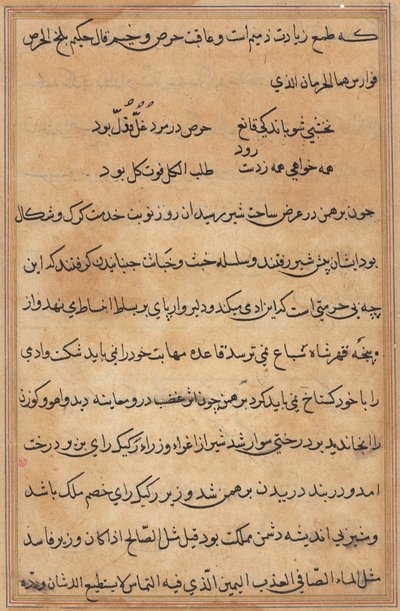 که طمع زیارت ذمیم است و عاقبت حرص وخیم قال حکیم بلخ الحرص
فوارس هالحرمان الذی
نخشبی شو باندکی قانع حرص در مرد غل وقل بود
همه خواهی همه زدست رود طلب الکل فوت کل بود
چون برهمن در عرض ساحت شیر رسید آن روز نوبت خدمت کرک و شکال
بود ایشان پیش شیر رفتند و سلسله خبث و خباثت جنبانیدن گرفتند که این
چه بی حرمتی است که این آدمی میکند و دلیروار پای بر بساط انبساط می نهد و از
پنجه قهر شاه سباع نمی ترسد قاعده مهابت خود را نمی باید شکست و آدمی
را با خود کستاخ نمی باید کرد برهمن چون اثر غضب در و معاینه دید و آهو و گوزن
را آنجا ندید بر درختی سوار شد شیر از اغراء وزراء رکیک رای بن درخت
آمد و در بند دریدن برهمن شد وزیر رکیک رای خصم ملک باشد
و مشیر بی اندیشه دشمن مملکت بود قیل مثل الصالح اذا کان وزیره فاسد
مثل الماء الصافی العذب الذی فیه التماس لا یستطیع الانسان وروده